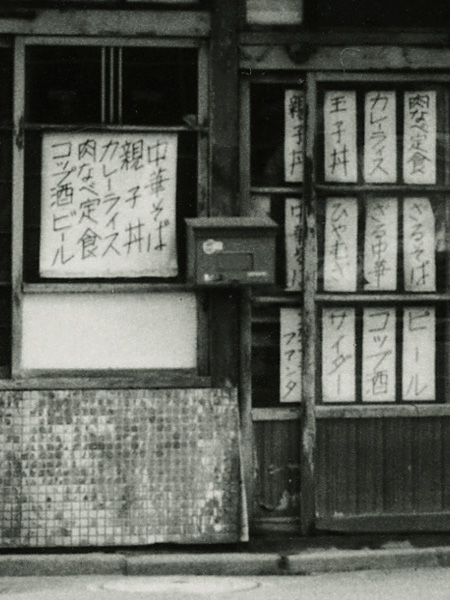 中華そば
親子丼
カレーライス
肉なべ定食
コップ酒ビール
肉なべ定食
カレーライス
玉子丼
親子丼
ざるそば
ざる中華
ひやむぎ
中華そば
ビール
コップ酒
サイダー
ファンタ